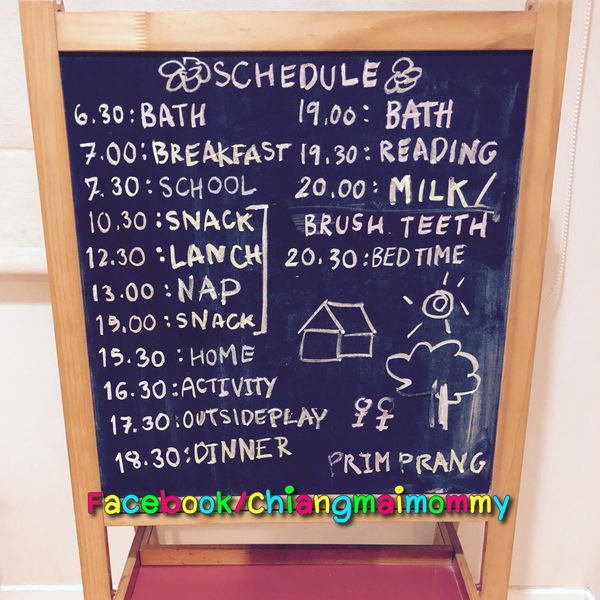 SCHEDULE
6.30: BATH
7.00: BREAKFAST
7.30: SCHOOL
10.30: SNACK
12.30: LANCH
13.00: NAP
15.00: SNACK
15.30: HOME
16.30: ACTIVITY
17.30: OUTSIDEPLAY
18.30: DINNER
19.00: BATH
19.30: READING
20.00: MILK/
BRUSH TEETH
20.30: BED TIME
PRIM PRANG
Facebook/Chiangmaimommy